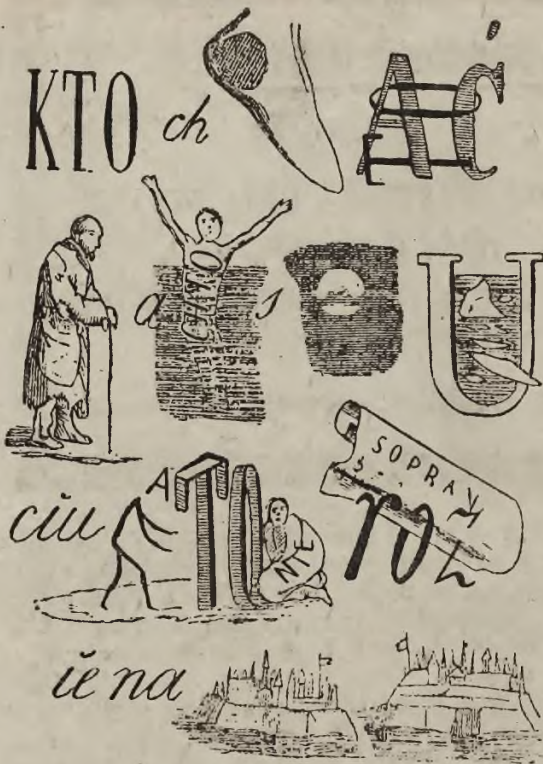 KTO ch E AĆ
a s U
ciu A TO NIE SOPRAN
ie na